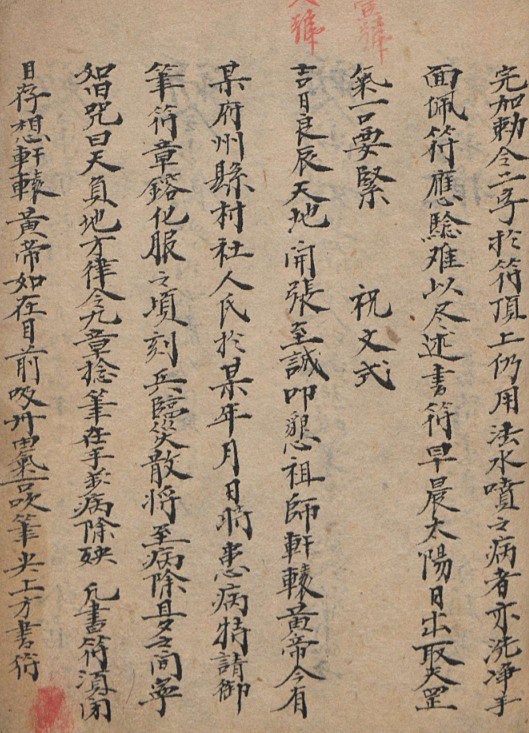 完加勅令二字於符頂上仍用法水噴之病者亦洗净手
面佩符應驗难以尽述書符早晨太陽日出取天罡
氣一口要緊　祝文式
吉日良辰天地開張至誠叩懇祖師軒轅黃帝今有
某府州縣村社人民於某年月日將患病特請御
筆符章鎔化服之頃刻兵臨災散將至病除旦夕之間寧
如旧咒曰天員地方律令九章捻筆在手萬病除殃　凡書符須閉
目存想軒轅黃帝如在目前吸丹田氣一口吹筆尖上方書符